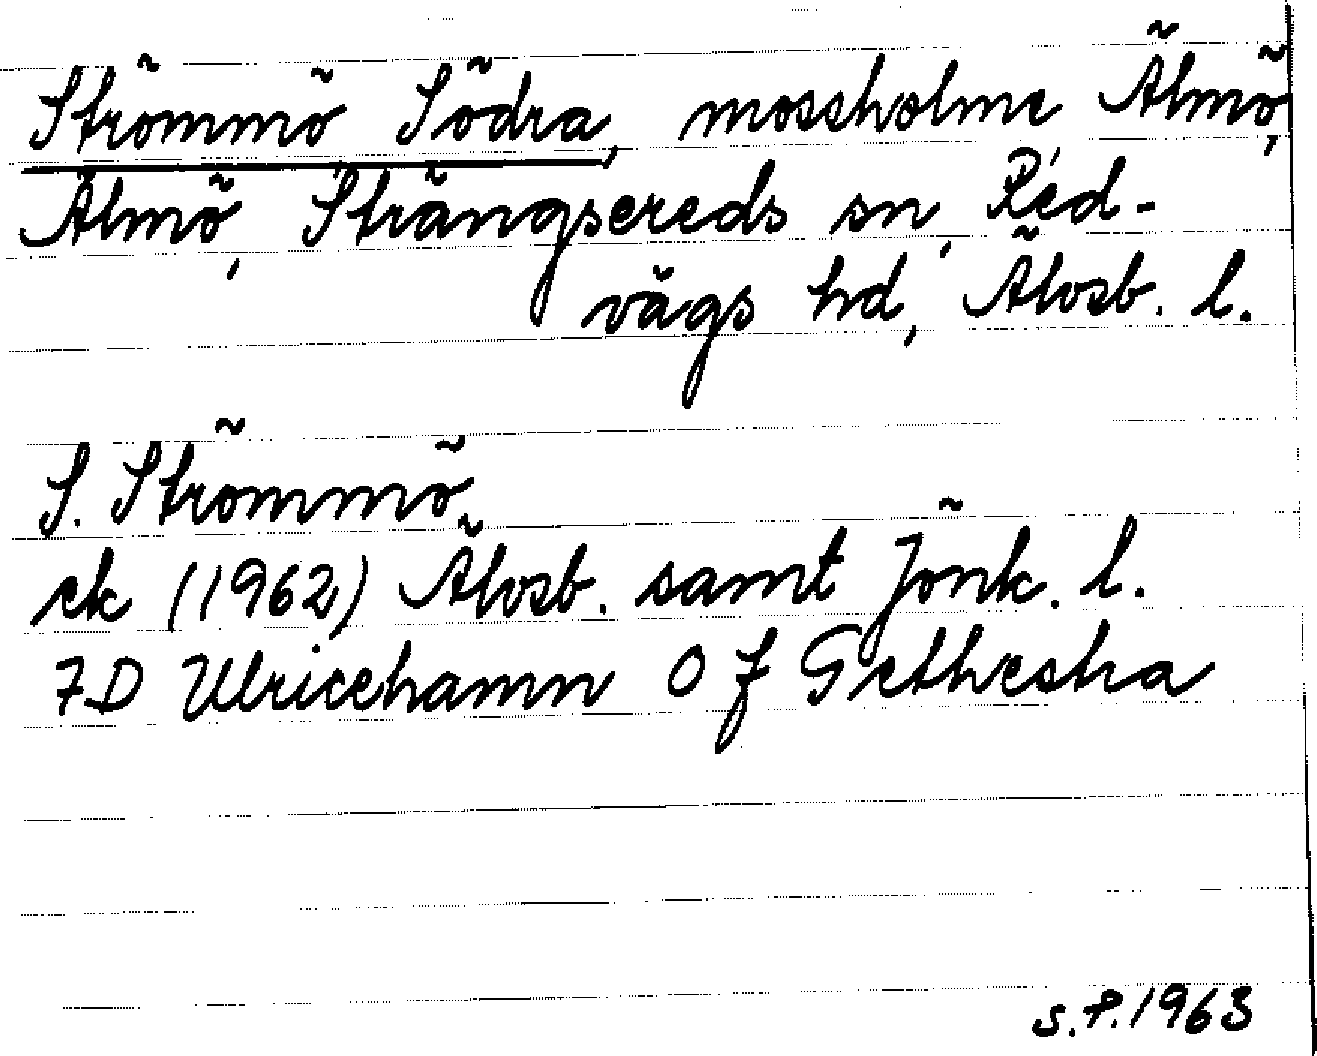 Strömmö Södra, mossholme Älmö,
Älmö, Strängsereds sn, Red-
vägs hd, Älvsb. l.
S. Strömmö
ek (1962) Älvsb. samt Jönk. l.
7D Ulricehamn 0 f Grethesha
s.P. 1963